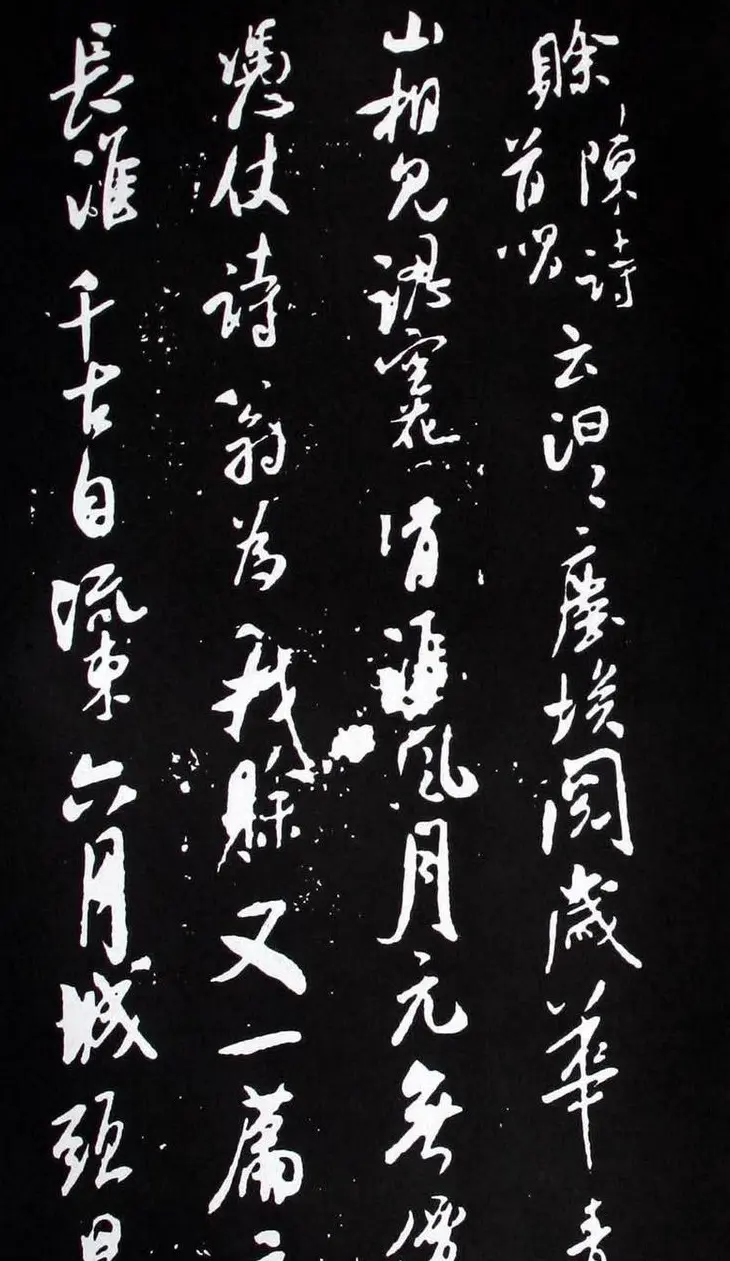 賒陳詩首唱云汩〻塵埃閱歲華青
山相見空花清淮風月元無價
憑仗詩翁為我賒又一篇云
長淮千古自流東六月城頭見